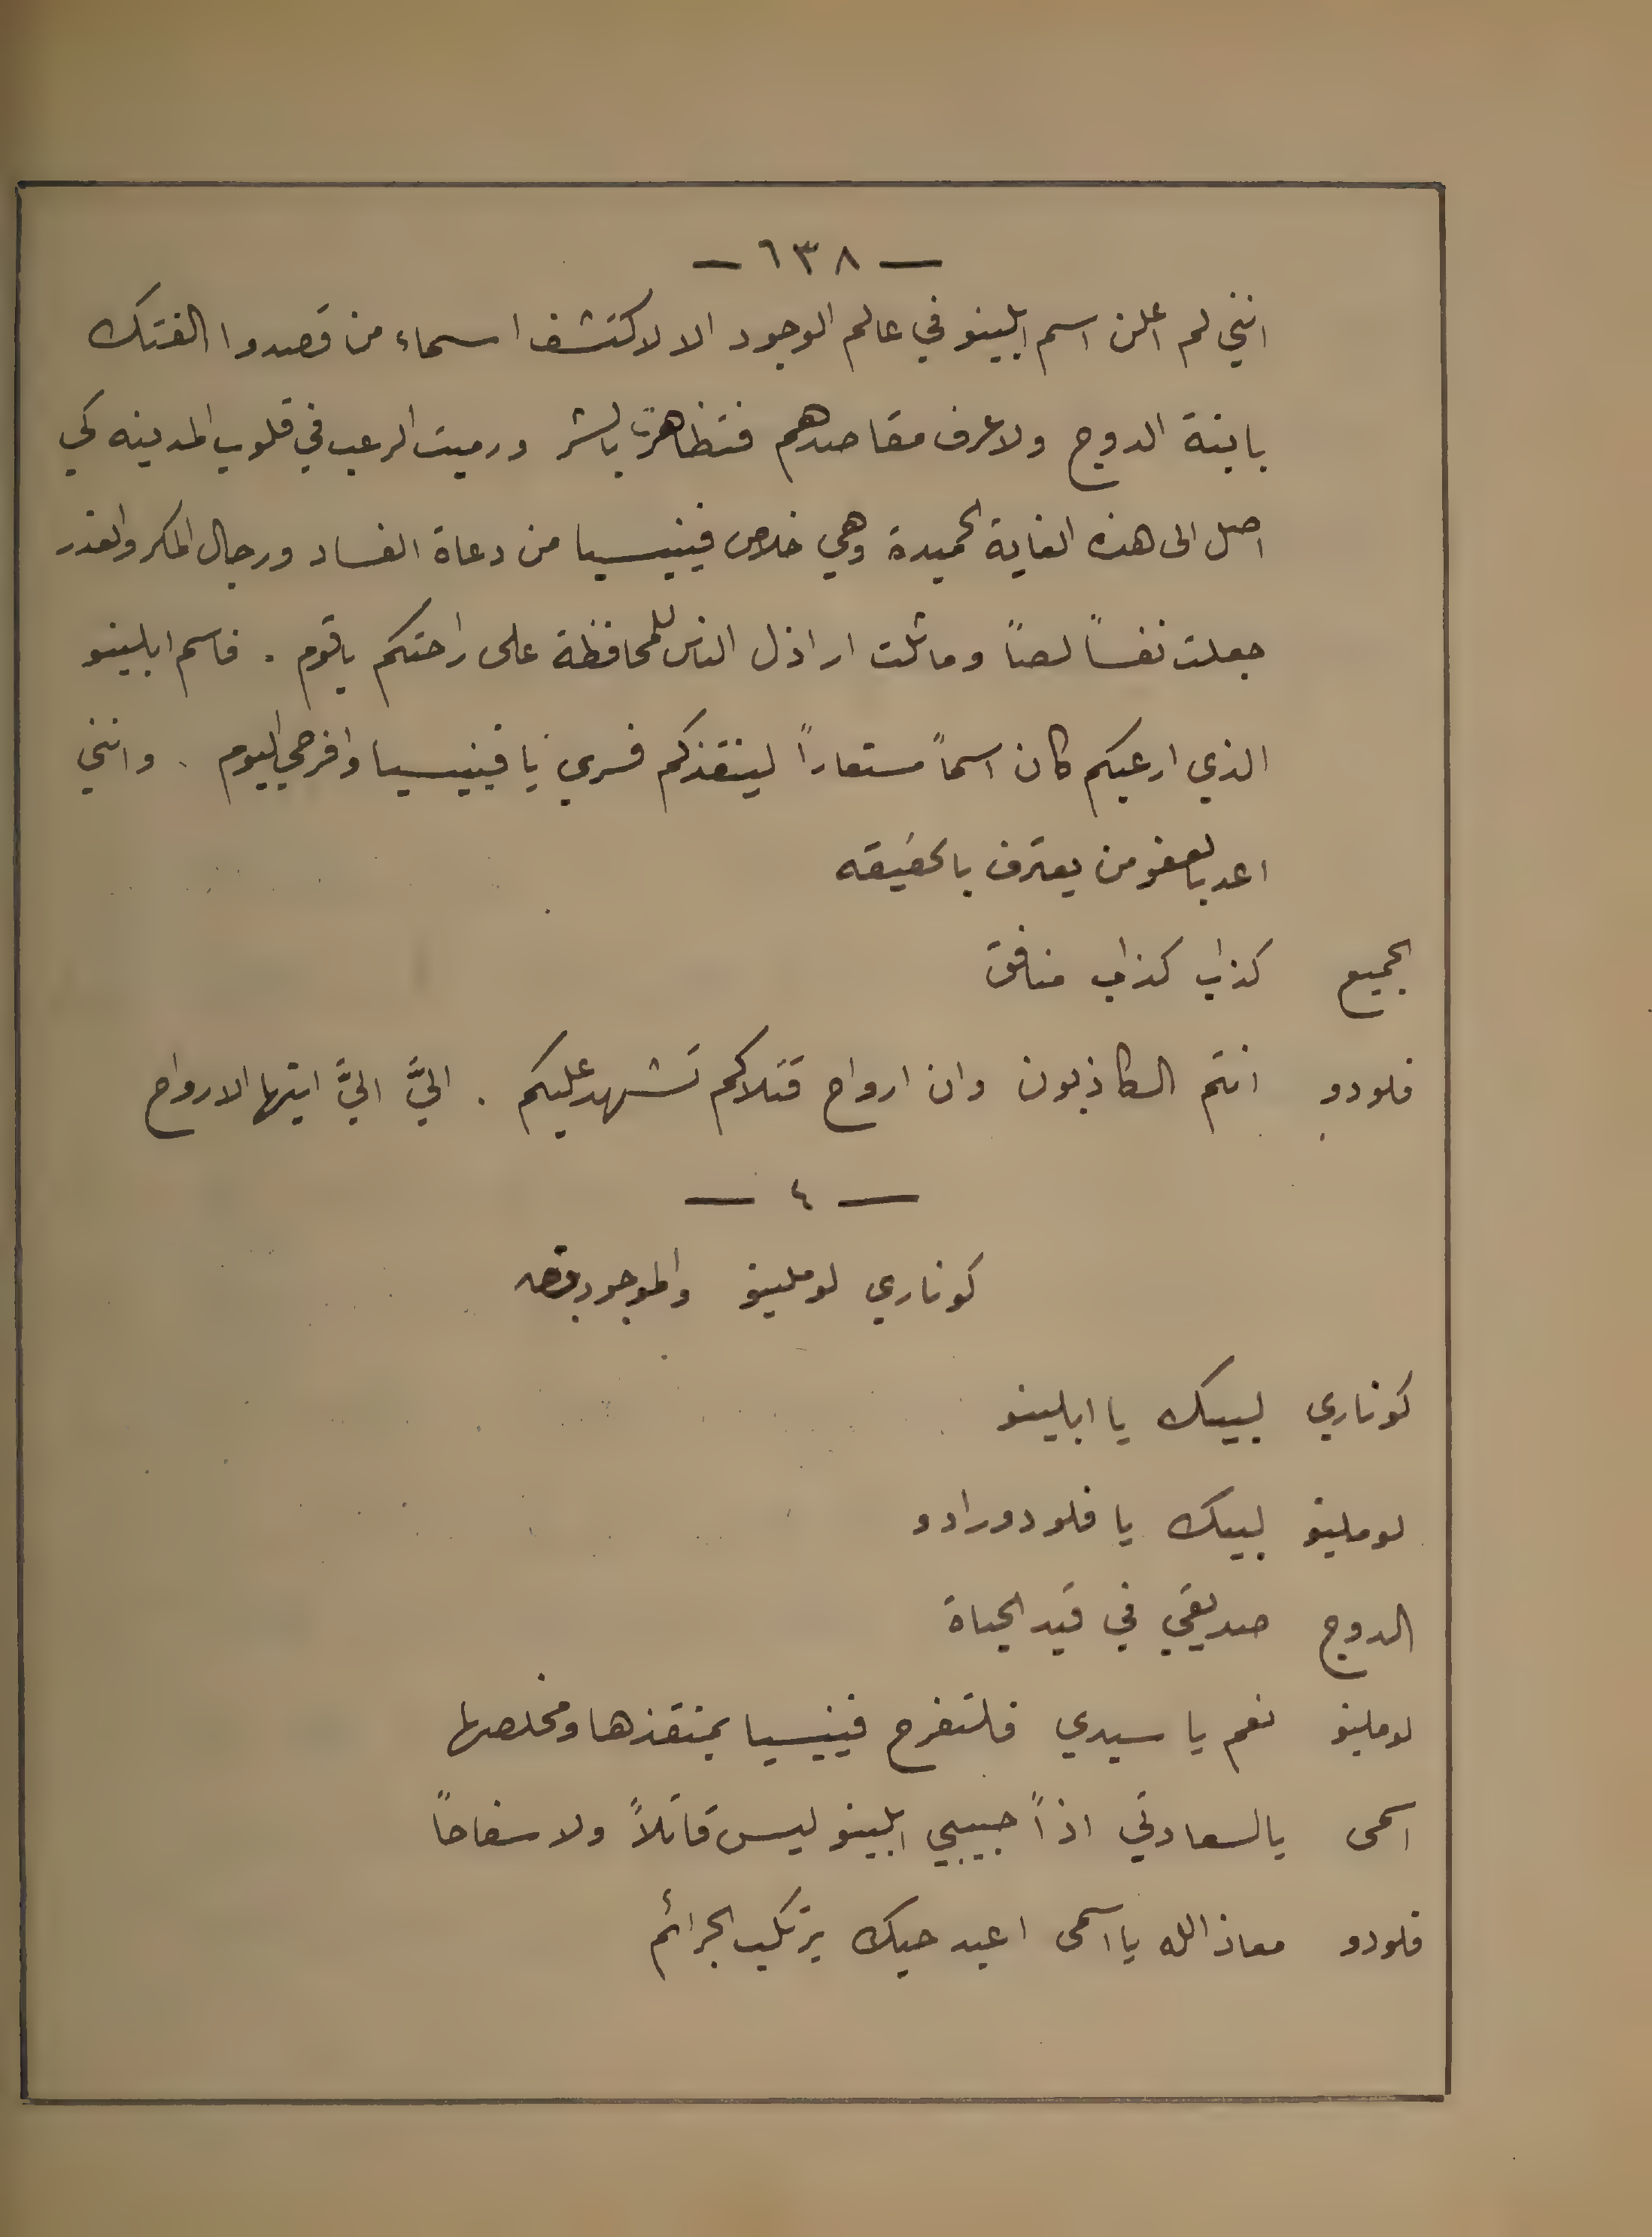 — ٦٣٨ —
انني لم اعلن اسم ابلينو في عالم الوجود الا لاكتشف اسماء من قصدوا الفتك
بابنة الدوج ولاعرف مقاصدهم فتظاهرت بالشر ورميت الرعب في قلوب المدينه كي
اصل الى هذه الغاية الحميدة وهي خلاص فينيسيا من دعاة الفساد ورجال المكر والغدر
جعلت نفساً لصاً وماثلت اراذل الناس للمحافظة على راحتكم ياقوم . فاسم ابلينو
الذي ارعبكم كان اسماً مستعاراً لينقذكم فسري يا فينيسيا وافرحي اليوم . وانني
اعد بالعفو من يعترف بالحقيقه
الجميع كذاب كذاب منافق
فلودو انتم الكاذبون وان ارواح قتلاكم تشهد عليكم . اليَّ اليَّ ايتها الارواح
— ٤ —
كوناري لوملينو والموجودون
كوناري لبيك يا ابلينو
لوملينو لبيك يا فلودورادو
الدوج صديقي في قيد الحياة
لوملينو نعم يا سيدي فلتفرح فينيسيا بمنقذها ومخلصها
اسمى يالسعادتي اذاً حبيبي ابلينو ليس قاتلاً ولا سفاحاً
فلودو معاذ الله يا اسمى اعبد حبك يرتكب الجرائم